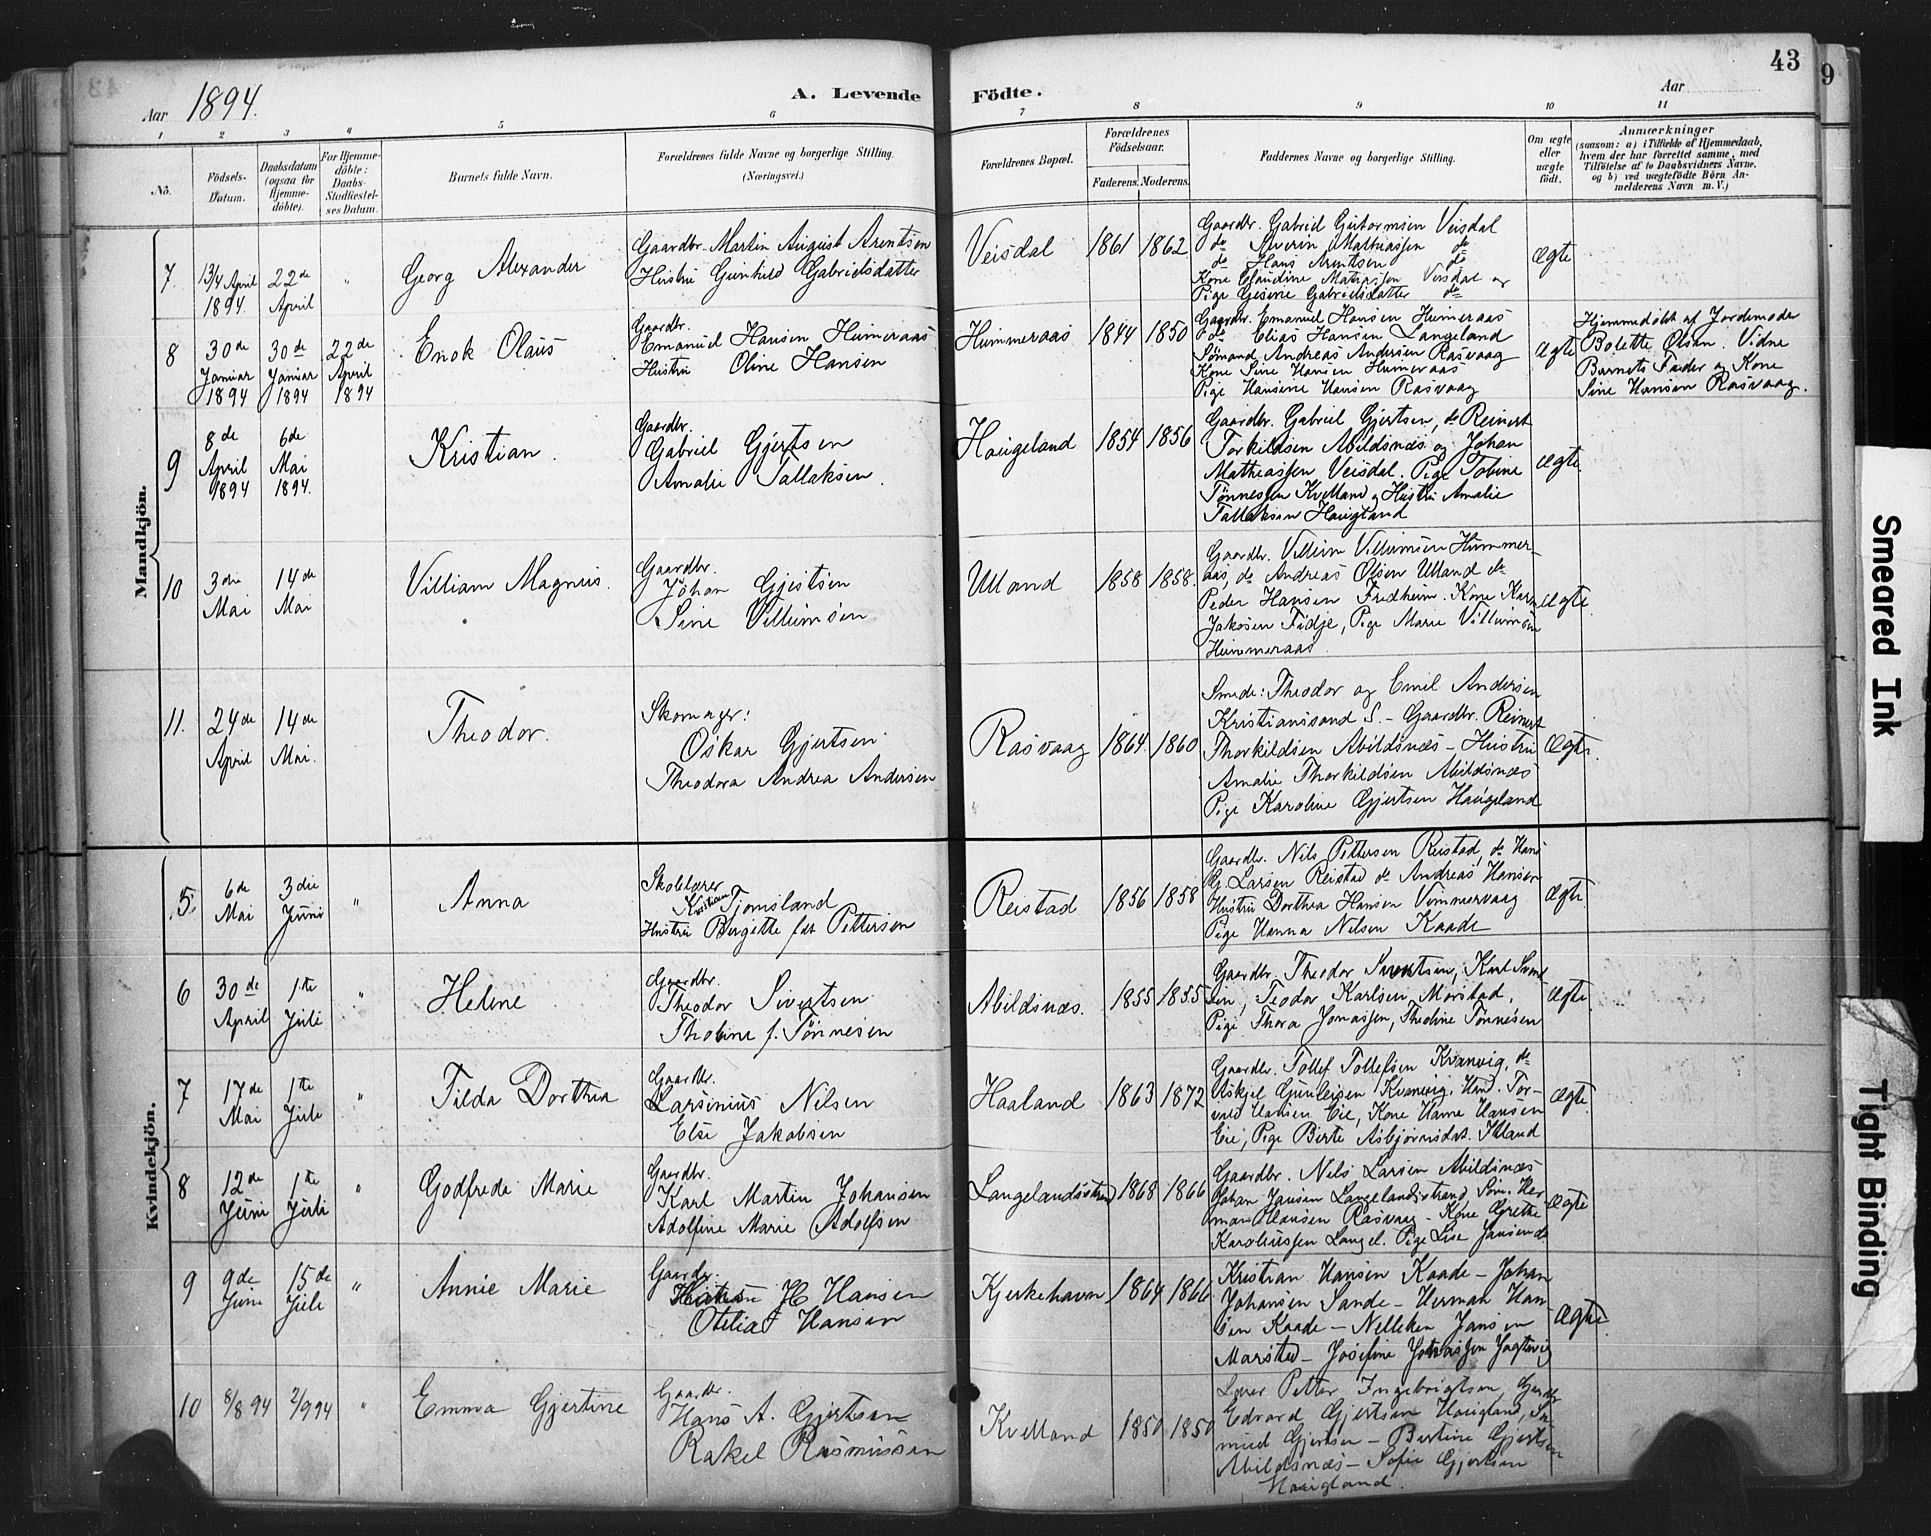 43
9
Aar 1894.
A. Levende Födte.
Aar
1 2 3 4 5 6 7 8 9 10 11
Nô.
Födsels-
Datum.
Daabsdatum
(ogsaa for
Hjemme-
döbte).
For Hjemme-
döbte:
Daabs-
Stadfæstel-
ses Datum.
Barnets fulde Navn.
Forældrenes fulde Navne og borgerlige Stilling.
(Næringsvei.)
Forældrenes Bopæl.
Forældrenes
Födselsaar.
Faderens. Moderens.
Faddernes Navne og borgerlige Stilling.
Om ægte
eller
uægte
födt.
Anmærkninger
(saasom: a) i Tilfælde af Hjemmedaab,
hvem der har forrettet samme, med
Tilföielse af to Daabsvidners Navne.
og b) ved uægtefödte Börn An-
melderens Navn m. V.)
Mandkjön.
7
13/4 April
1894
22de
April
"
Georg Alexander
Gaardbr. Martin August Arentsen
Hustru Gunhild Gabrielsdatter
Veisdal
1861 1862
Gaardbr. Gabriel Guttormsen Veisdal
do Severin Mathiassen do
do Hans Arentsen do
Kone Claudine Mathiassen Veisdal og
Pige Gesine Gabrielsdatter do
Ægte
8
30de
Januar
1894
30de
Januar
1894
22de
April
1894
Enok Olaus
Gaardbr.
Emanuel Hansen Hummeraas
Hustru Oline Hansen
Hummeraas
1844 1850
Gaardbr. Emanuel Hansen Humeraas
do Elias Hansen Langeland
Sømand Andreas Andersen Rasvaag
Kone Sine Hansen Humeraas
Pige Hansine Hansen Rasvaag
Ægte
Hjemmedøbt af Jordemoder
Bolette Olsen. Vidne
Barnets Fader og Kone
Sine Hansen Rasvaag.
9
8de
April
1894
6de
Mai
1894.
Kristian.
Gaardbr.
Gabriel Gjertsen
Amalie Tallaksen.
Haugeland
1854 1856
Gaardbr. Gabriel Gjertsen, do Reinert
Torkildsen Abildsnæs og Johan
Mathiassen Veisdal. Pige Tobine
Tønnessen Kvelland og Hustru Amalie
Tallaksen Haugland
Ægte
10
3die
Mai
14de
Mai
Villiam Magnus.
Gaardbr.
Johan Gjertsen
Sine Villumsen
Ulland
1858 1858.
Gaardbr. Villum Villumsen Hummer-
aas, do Andreas Olsen Ulland do
Peder Hansen Fredheim. Kone Karen
Jakobsen Fidje, Pige Marie Villumsen
Hummeraas
Ægte
11.
24de
April
14de
Mai.
Theodor.
Skomager:
Oskar Gjertsen
Theodora Andrea Andersen
Rasvaag
1864 1860
Smede: Theodor og Emil Andersen
Kristianssand S. - Gaardbr. Reinert
Thorkildsen Abildsnæs - Hustru
Amalie Thorkildsen Abildsnæs
Pige Karoline Gjertsen Haugeland
Ægte.
Kvindekjön.
5.
6de
Mai
3die
Juni
"
Anna
Skolelærer
Kristian Tjomsland
Hustru Birgitte født Pettersen
Reistad
1856 1858
Gaardbr. Nils Pettersen Reistad, do Hans
G. Larsen Reistad do Andreas Hansen
Hustru Dorthea Hansen Vimmervaag
Pige Hanna Nilsen Kaade
Ægte
6
30de
April
1te
Juli
"
Helene
Gaardbr.
Theodor Sivertsen
Thobine f. Tønnesen
Abildsnæs.
1855 1855
Gaardbr. Theodor Sivertsen, Karl
sen, Teodor Karlsen Marstad,
Pige Thora Jonassen, Theoline Tønnesen
Ægte
7
17de
Mai
1te
Juli
"
Tilda Dorthea
Gaardbr.
Larsinius Nilsen
Else Jakobsen
Haaland
1863 1872
Gaardbr. Tollef Tollefsen Kvanvig, do
Askjel Gunleigsen Kvanvig. Hand. Tor-
vald Hansen Eie, Kone Hanne Hansen
Eie, Pige Birte Asbjørnsdat. Itland
Ægte
8
12de
Juni
1te
Juli
"
Godfrede Marie
Gaardbr.
Karl Martin Johansen
Adolfine Marie Adolfsen
Langelandsstrand
1868 1866
Gaardbr. Nels Larsen Abildsnæs
Johan Jansen Langelandsstrand, Søm. Her-
man Hansen Rasvaag - Kone Grethe
Karoliussen Langel. Pige Lise Jansen do
Ægte
9
9de
Juni
15de
Juli
"
Annie Marie
Gaardbr.
H Hansen
Otelia Hansen
Kjerkehavn
1864 1866
Kristian Hansen Kaade - Johan
Johansen Sande - Herman Han-
sen Kaade - Nelleken Jansen
Marstad - Josefine Johnssen Jagtevig
Ægte
10
8/8 94
2/9 94
"
Emma Gjertine
Gaardbr.
Hans A. Gjertsen
Rakel Rasmussen
Kvelland
1850 1850
Lærer Petter Ingebrigtsen, Gaardbr
Edvard Gjertsen Haugland, Sa-
muel Gjertsen - Bertine Gjertsen
Abildsnæs - Sofie Gjertsen
Haugland.
Smeared Ink
Tight Binding